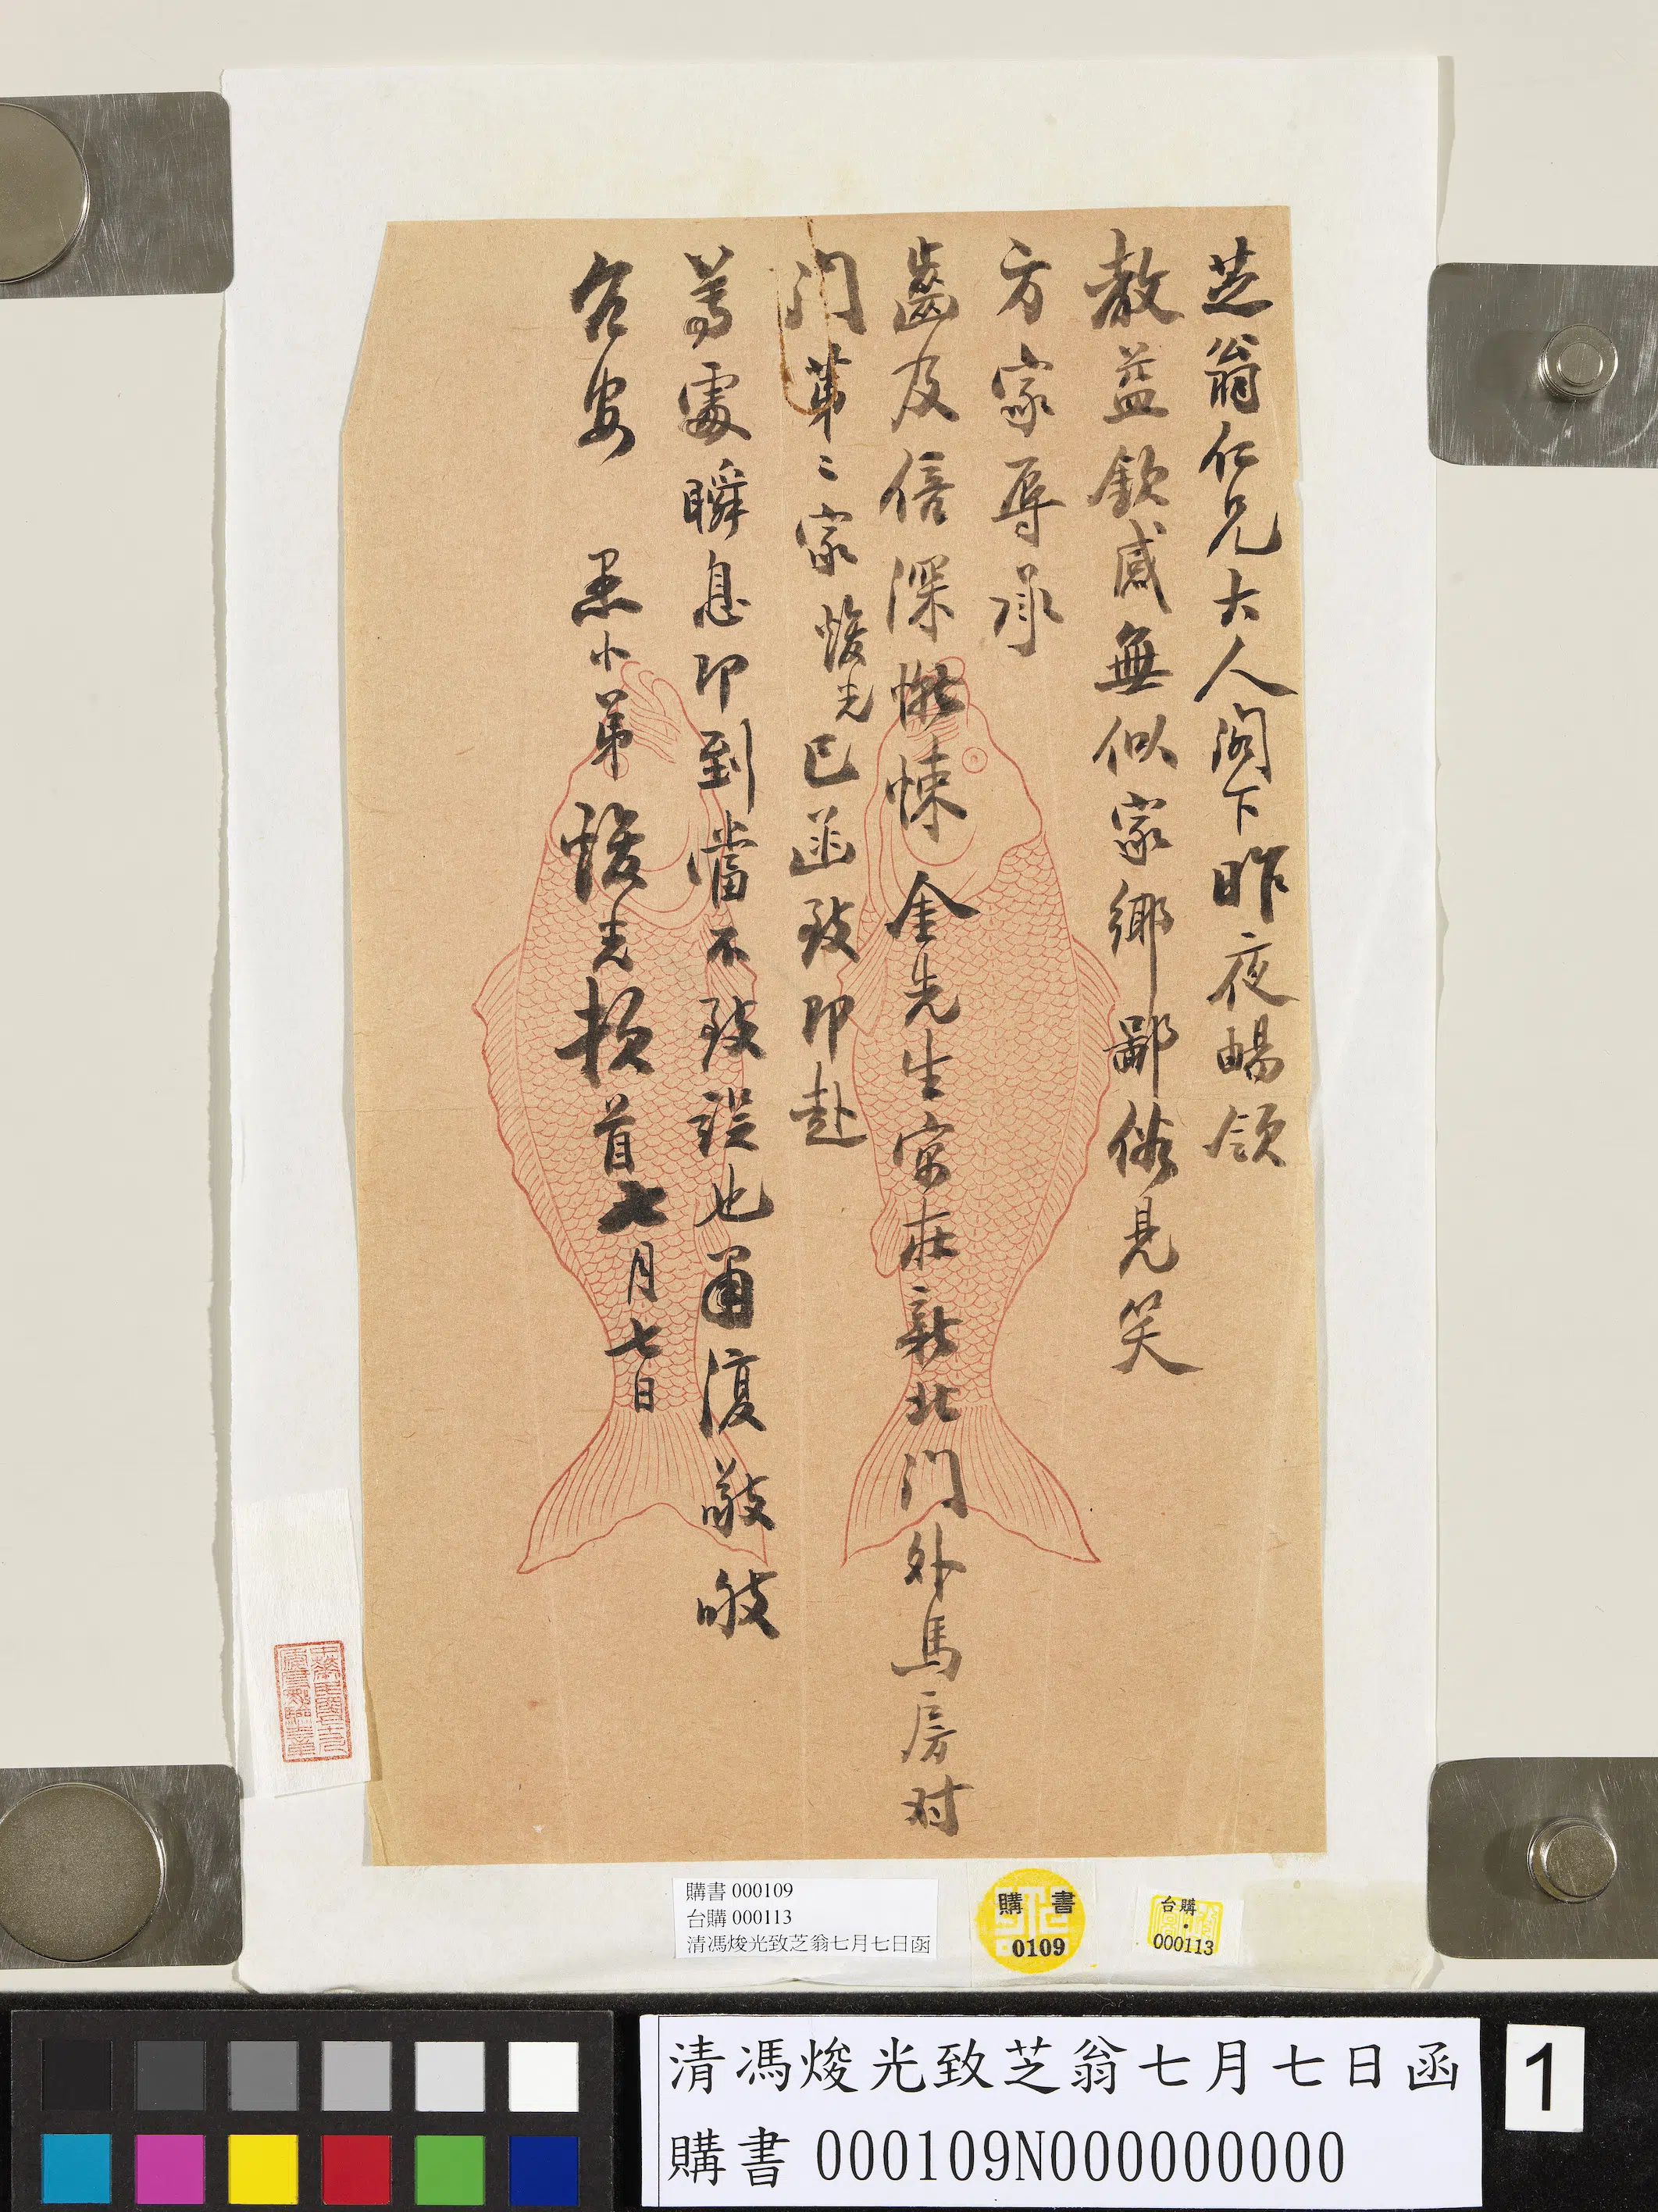 芝翁仁兄大人閣下昨夜暢領
教益欽感無似家鄉鄙俗見笑
方家辱承
齒及倍深慚悚金先生寓在新北門外馬房对
门第二家焌光已函致即赴
尊處瞬息即到當不致误也肅復敬
台安 愚小弟焌光頓首七月七日
購書 000109
台購 000113
清馮焌光致芝翁七月七日函
購書
0109
台購
000113
清馮焌光致芝翁七月七日函
購書 000109N000000000
1